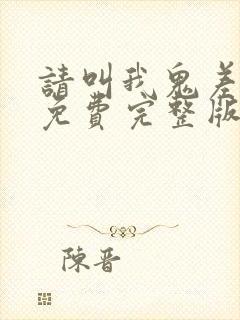 請叫我鬼差
免費完整版
陳晋